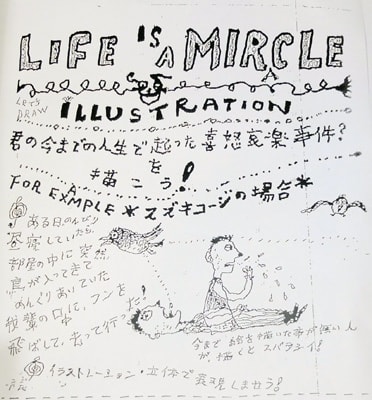 LIFE IS A MIRCLE
A
LET'S
DRAW
ILLUSTRATION
君の今までの人生で起った喜怒哀楽事件?
を
描こう!
A
FOR EXMPLE * スズキコージの場合 *
ある日のんびり
昼寝していたら、
部屋の中に突然
鳥が入ってきて
あんぐりあいていた
我輩の口に、フンを
飛ばして、去って行った!
今まで絵を描いた事が無い人
が、描くとスバラシイ!
イラストレーション・立体で表現しませう!